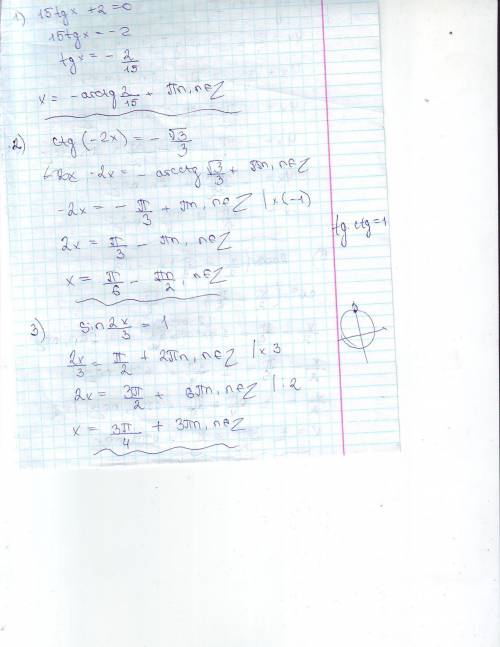 1) 15tgx + 2 = 0
15tgx = - 2
tgx = - 2/15
x = - arctg 2/15 + πn, n∈Z
2) ctg(-2x) = - √3/3
-2x = - arcctg √3/3 + πn, n∈Z
-2x = - π/3 + πn, n∈Z | x(-1)
2x = π/3 - πn, n∈Z
tg·ctg=1
x = π/6 - πn/2, n∈Z
3) sin 2x/3 = 1
2x/3 = π/2 + 2πn, n∈Z | x 3
2x = 3π/2 + 6πn, n∈Z | :2
x = 3π/4 + 3πn, n∈Z